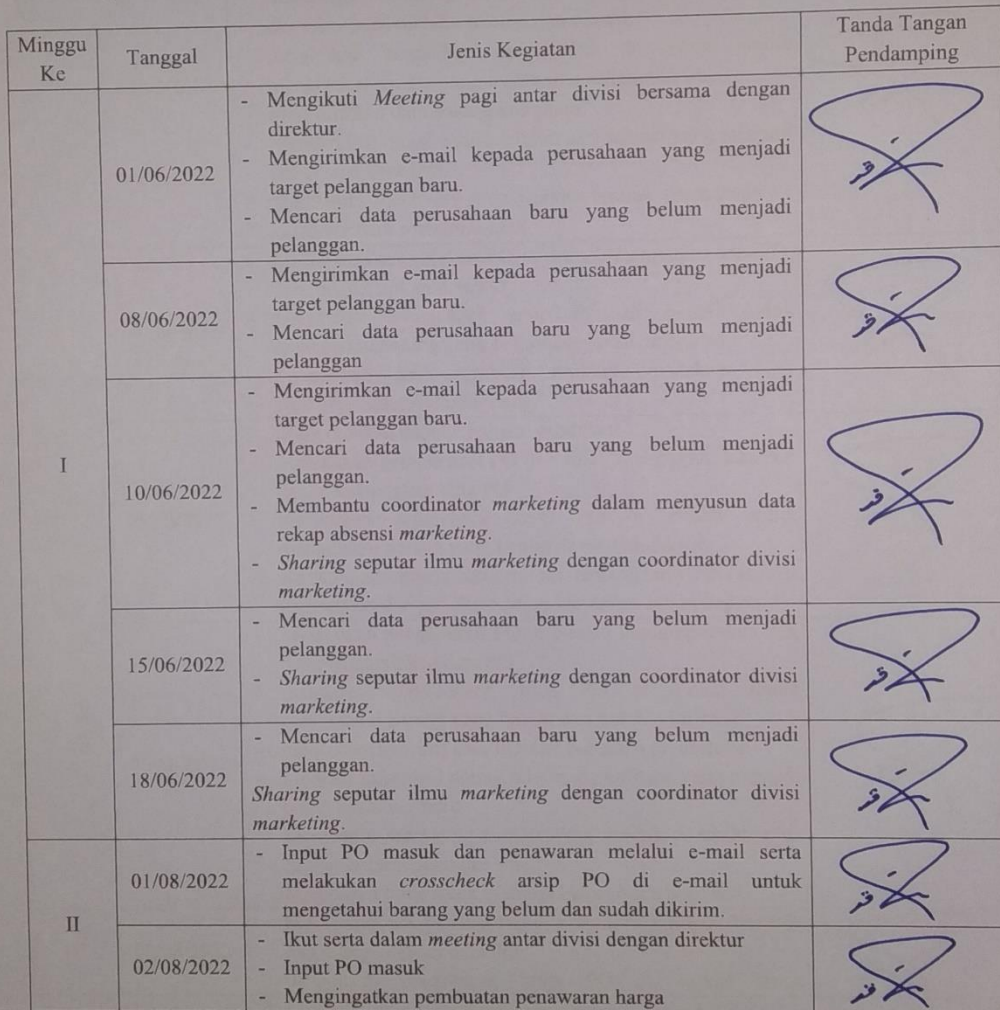 Minggu Ke
Tanggal
Jenis Kegiatan
Tanda Tangan
Pendamping
I
01/06/2022
- Mengikuti Meeting pagi antar divisi bersama dengan
direktur.
- Mengirimkan e-mail kepada perusahaan yang menjadi
target pelanggan baru.
- Mencari data perusahaan baru yang belum menjadi
pelanggan.
08/06/2022
- Mengirimkan e-mail kepada perusahaan yang menjadi
target pelanggan baru.
- Mencari data perusahaan baru yang belum menjadi
pelanggan
10/06/2022
- Mengirimkan e-mail kepada perusahaan yang menjadi
target pelanggan baru.
- Mencari data perusahaan baru yang belum menjadi
pelanggan.
- Membantu coordinator marketing dalam menyusun data
rekap absensi marketing.
- Sharing seputar ilmu marketing dengan coordinator divisi
marketing.
15/06/2022
- Mencari data perusahaan baru yang belum menjadi
pelanggan.
- Sharing seputar ilmu marketing dengan coordinator divisi
marketing.
18/06/2022
- Mencari data perusahaan baru yang belum menjadi
pelanggan.
Sharing seputar ilmu marketing dengan coordinator divisi
marketing.
II
01/08/2022
- Input PO masuk dan penawaran melalui e-mail serta
melakukan crosscheck arsip PO di e-mail untuk
mengetahui barang yang belum dan sudah dikirim.
02/08/2022
- Ikut serta dalam meeting antar divisi dengan direktur
- Input PO masuk
- Mengingatkan pembuatan penawaran harga